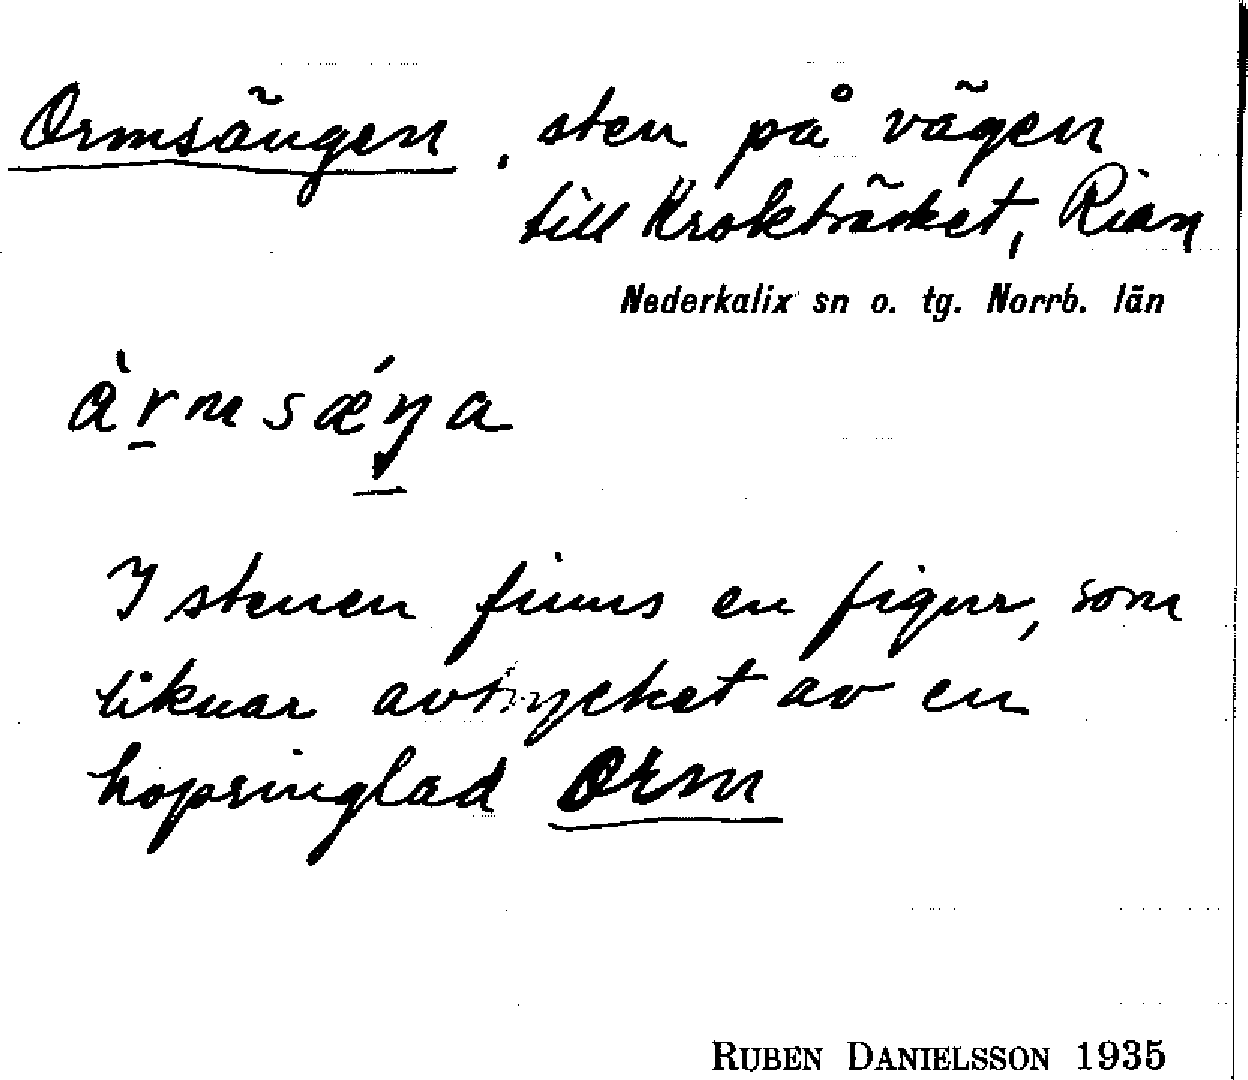 Ormsängen, sten på vägen
till Krokträsket, Rian
Nederkalix sn o. tg. Norrb. län
àr̠msǽŋa
I stenen finns en figur, som
liknar avtrycket av en
hopringlad orm
RUBEN DANIELSSON 1935